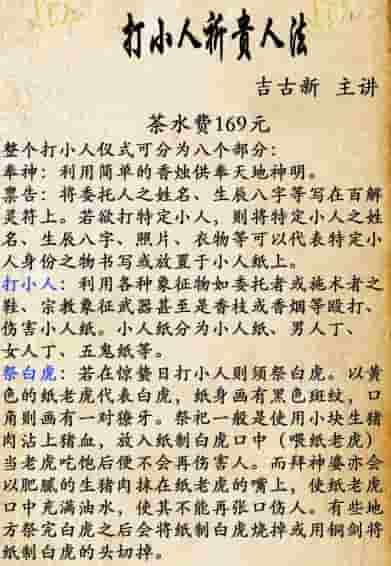 打小人祈貴人法
吉古新 主讲
茶水费169元
整个打小人仪式可分为八个部分：
奉神：利用简单的香烛供奉天地神明。
禀告：将委托人之姓名、生辰八字等写在百解
灵符上。若欲打特定小人，则将特定小人之姓
名、生辰八字、照片、衣物等可以代表特定小
人身份之物书写或放置于小人纸上。
打小人：利用各种象征物如委托者或施术者之
鞋、宗教象征武器甚至是香枝或香烟等殴打、
伤害小人纸。小人纸分为小人纸、男人丁、
女人丁、五鬼纸等。
祭白虎：若在惊蛰日打小人则须祭白虎。以黄
色的纸老虎代表白虎，纸身画有黑色斑纹，口
角则画有一对獠牙。祭祀一般是使用小块生猪
肉沾上猪血，放入纸制白虎口中（喂纸老虎）
当老虎吃饱后便不会再伤害人。而拜神婆亦会
以肥腻的生猪肉抹在纸老虎的嘴上，使纸老虎
口中充满油水，使其不能再张口伤人。有些地
方祭完白虎之后会将纸制白虎烧掉或用铜剑将
纸制白虎的头切掉。